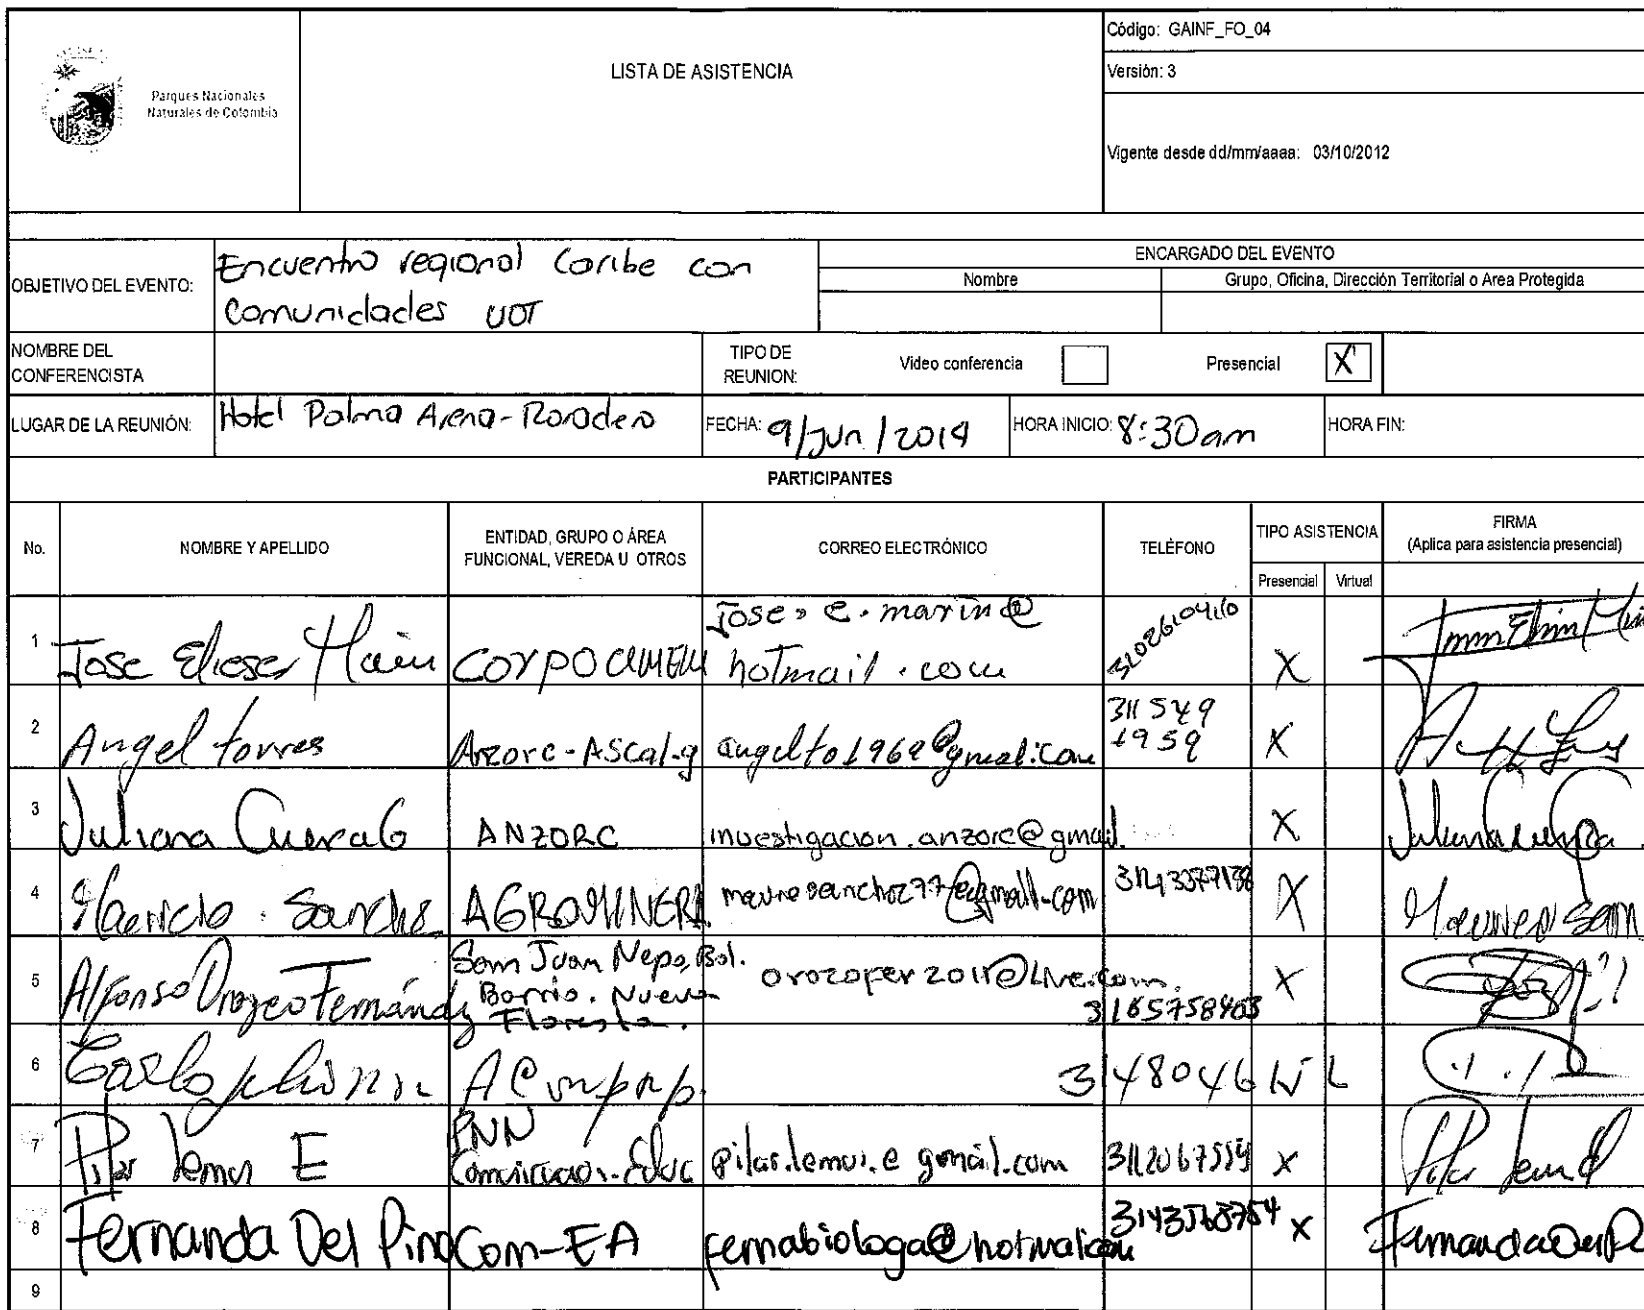 Parques Nacionales
Naturales de Colombia
LISTA DE ASISTENCIA
Código: GAINF_FO_04
Versión: 3
Vigente desde dd/mm/aaaa: 03/10/2012
OBJETIVO DEL EVENTO:
Encuentro regional Caribe con
Comunidades UOT
ENCARGADO DEL EVENTO
Nombre
Grupo, Oficina, Dirección Territorial o Area Protegida
NOMBRE DEL
CONFERENCISTA
TIPO DE
REUNION:
Video conferencia
Presencial X
LUGAR DE LA REUNIÓN: Hotel Palma Arena-Rodadero
FECHA: 9/Jun/2014
HORA INICIO: 8:30am
HORA FIN:
PARTICIPANTES
No.
NOMBRE Y APELLIDO
ENTIDAD, GRUPO O ÁREA
FUNCIONAL, VEREDA U OTROS
CORREO ELECTRÓNICO
TELÉFONO
TIPO ASISTENCIA
Presencial Virtual
FIRMA
(Aplica para asistencia presencial)
1 Jose Elieser Marin
jose.e.marin@
hotmail.com
X
2 Angel torres
angelto1969@gmail.com
311 549
1959
X
3 Juliana Cueva G ANZORC investigacion.anzorc@gmail. X
4 Sanche AGROMINERA X
5 Alfonso Orozco Fernández
San Juan Nepo, Bol.
Barrio. Nueva
Floresta.
3165758403
X
6
7 Pilar Lemus E
PNN
Comunicacion-Educ
pilar.lemus.e gmail.com
X
8 Fernanda Del Pino Com-EA fernabiologa@hotmail.com X
9